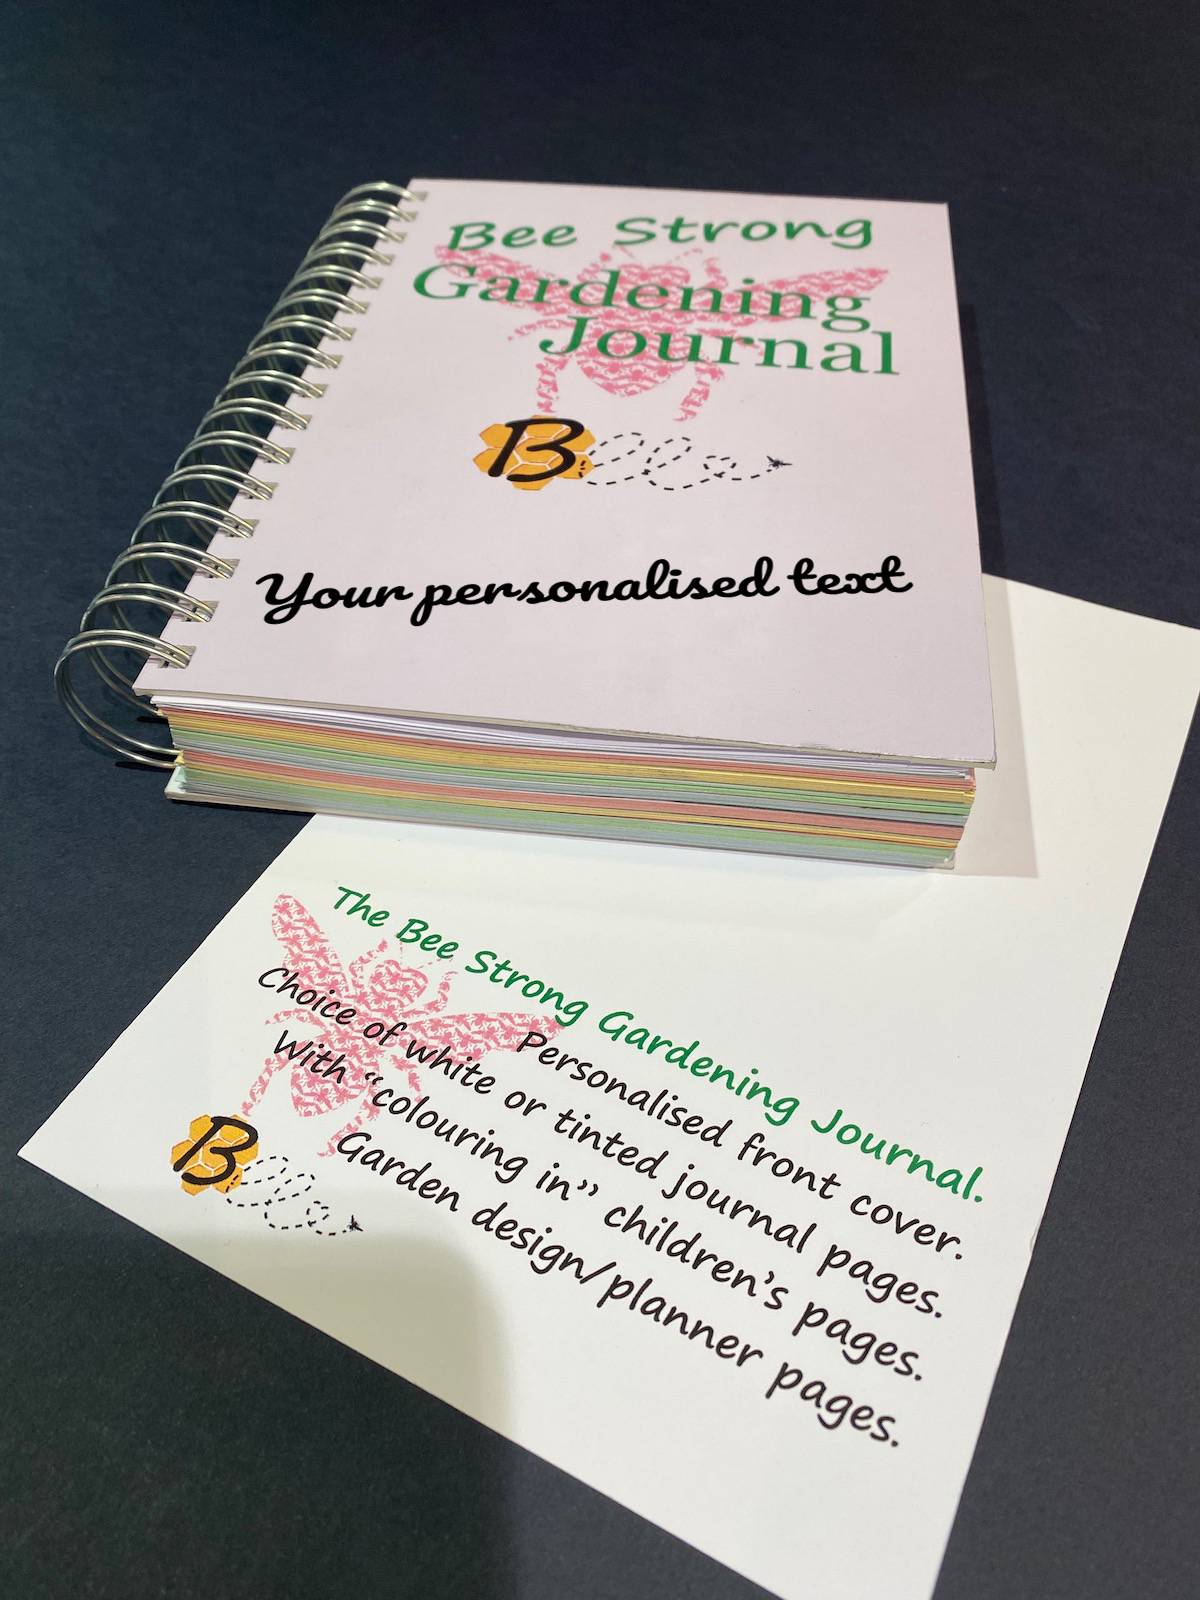 Bee Strong
Gardening
Journal
B
Your personalised text
The Bee Strong Gardening Journal.
Personalised front cover.
Choice of white or tinted journal pages.
With “colouring in” children’s pages.
Garden design/planner pages.
B